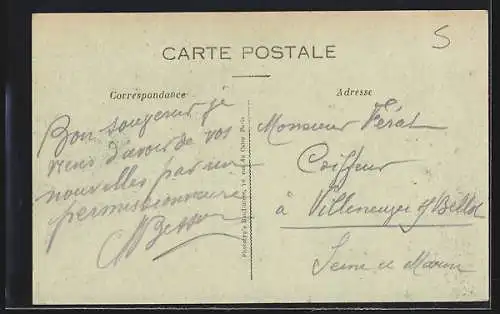 CARTE POSTALE
5
Correspondance
Adresse
Bon souvenir je
viens d'avoir de vos
nouvelles par un
permissionnaire
Besson
Monsieur Férat
Coiffeur
à Villeneuve s/Bellot
Seine et Marne